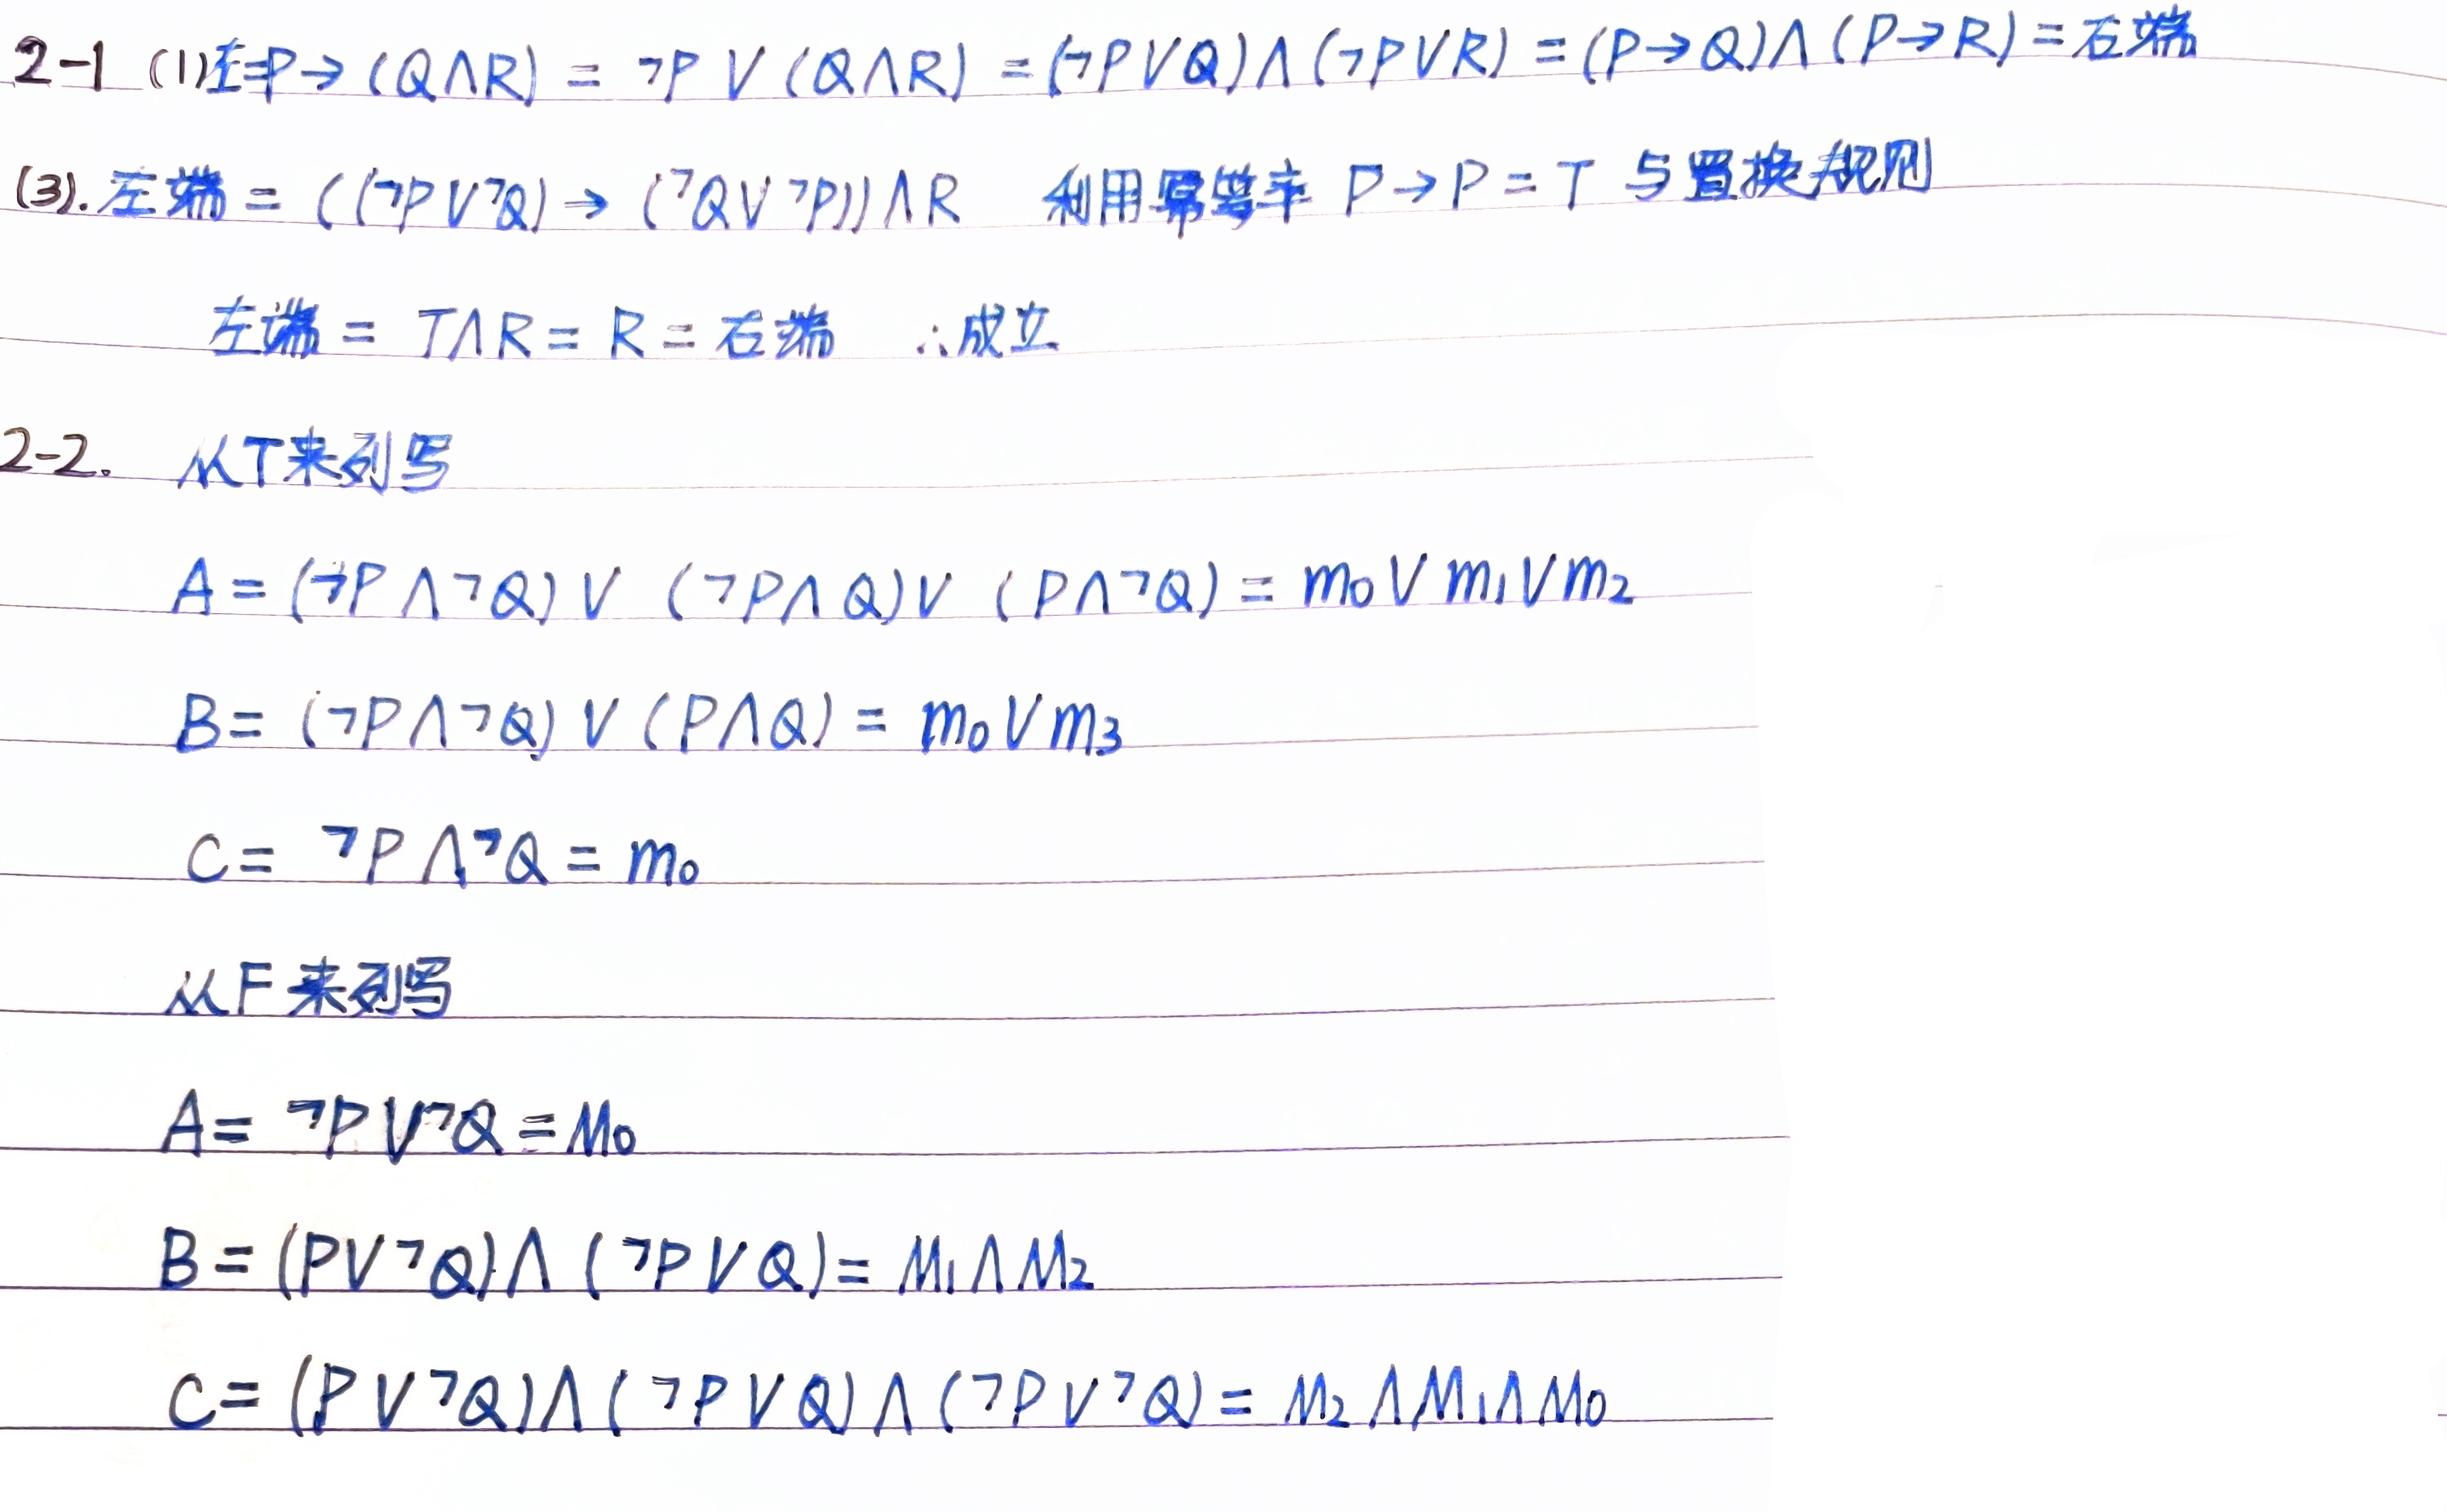 2-1 (1)左=P→(Q∧R) = ¬P∨(Q∧R) = (¬P∨Q)∧(¬P∨R) = (P→Q)∧(P→R) = 右端
(3). 左端 = ((¬P∨¬Q)→(¬Q∨¬P))∧R 利用幂等率 P→P=T 与置换规则
左端 = T∧R = R = 右端 ∴成立
2-2. 从T来列写
A = (¬P∧¬Q)∨(¬P∧Q)∨(P∧¬Q) = m₀∨m₁∨m₂
B = (¬P∧¬Q)∨(P∧Q) = m₀∨m₃
C = ¬P∧¬Q = m₀
从F来列写
A = ¬P∨¬Q = M₀
B = (P∨¬Q)∧(¬P∨Q) = M₁∧M₂
C = (P∨¬Q)∧(¬P∨Q)∧(¬P∨¬Q) = M₂∧M₁∧M₀